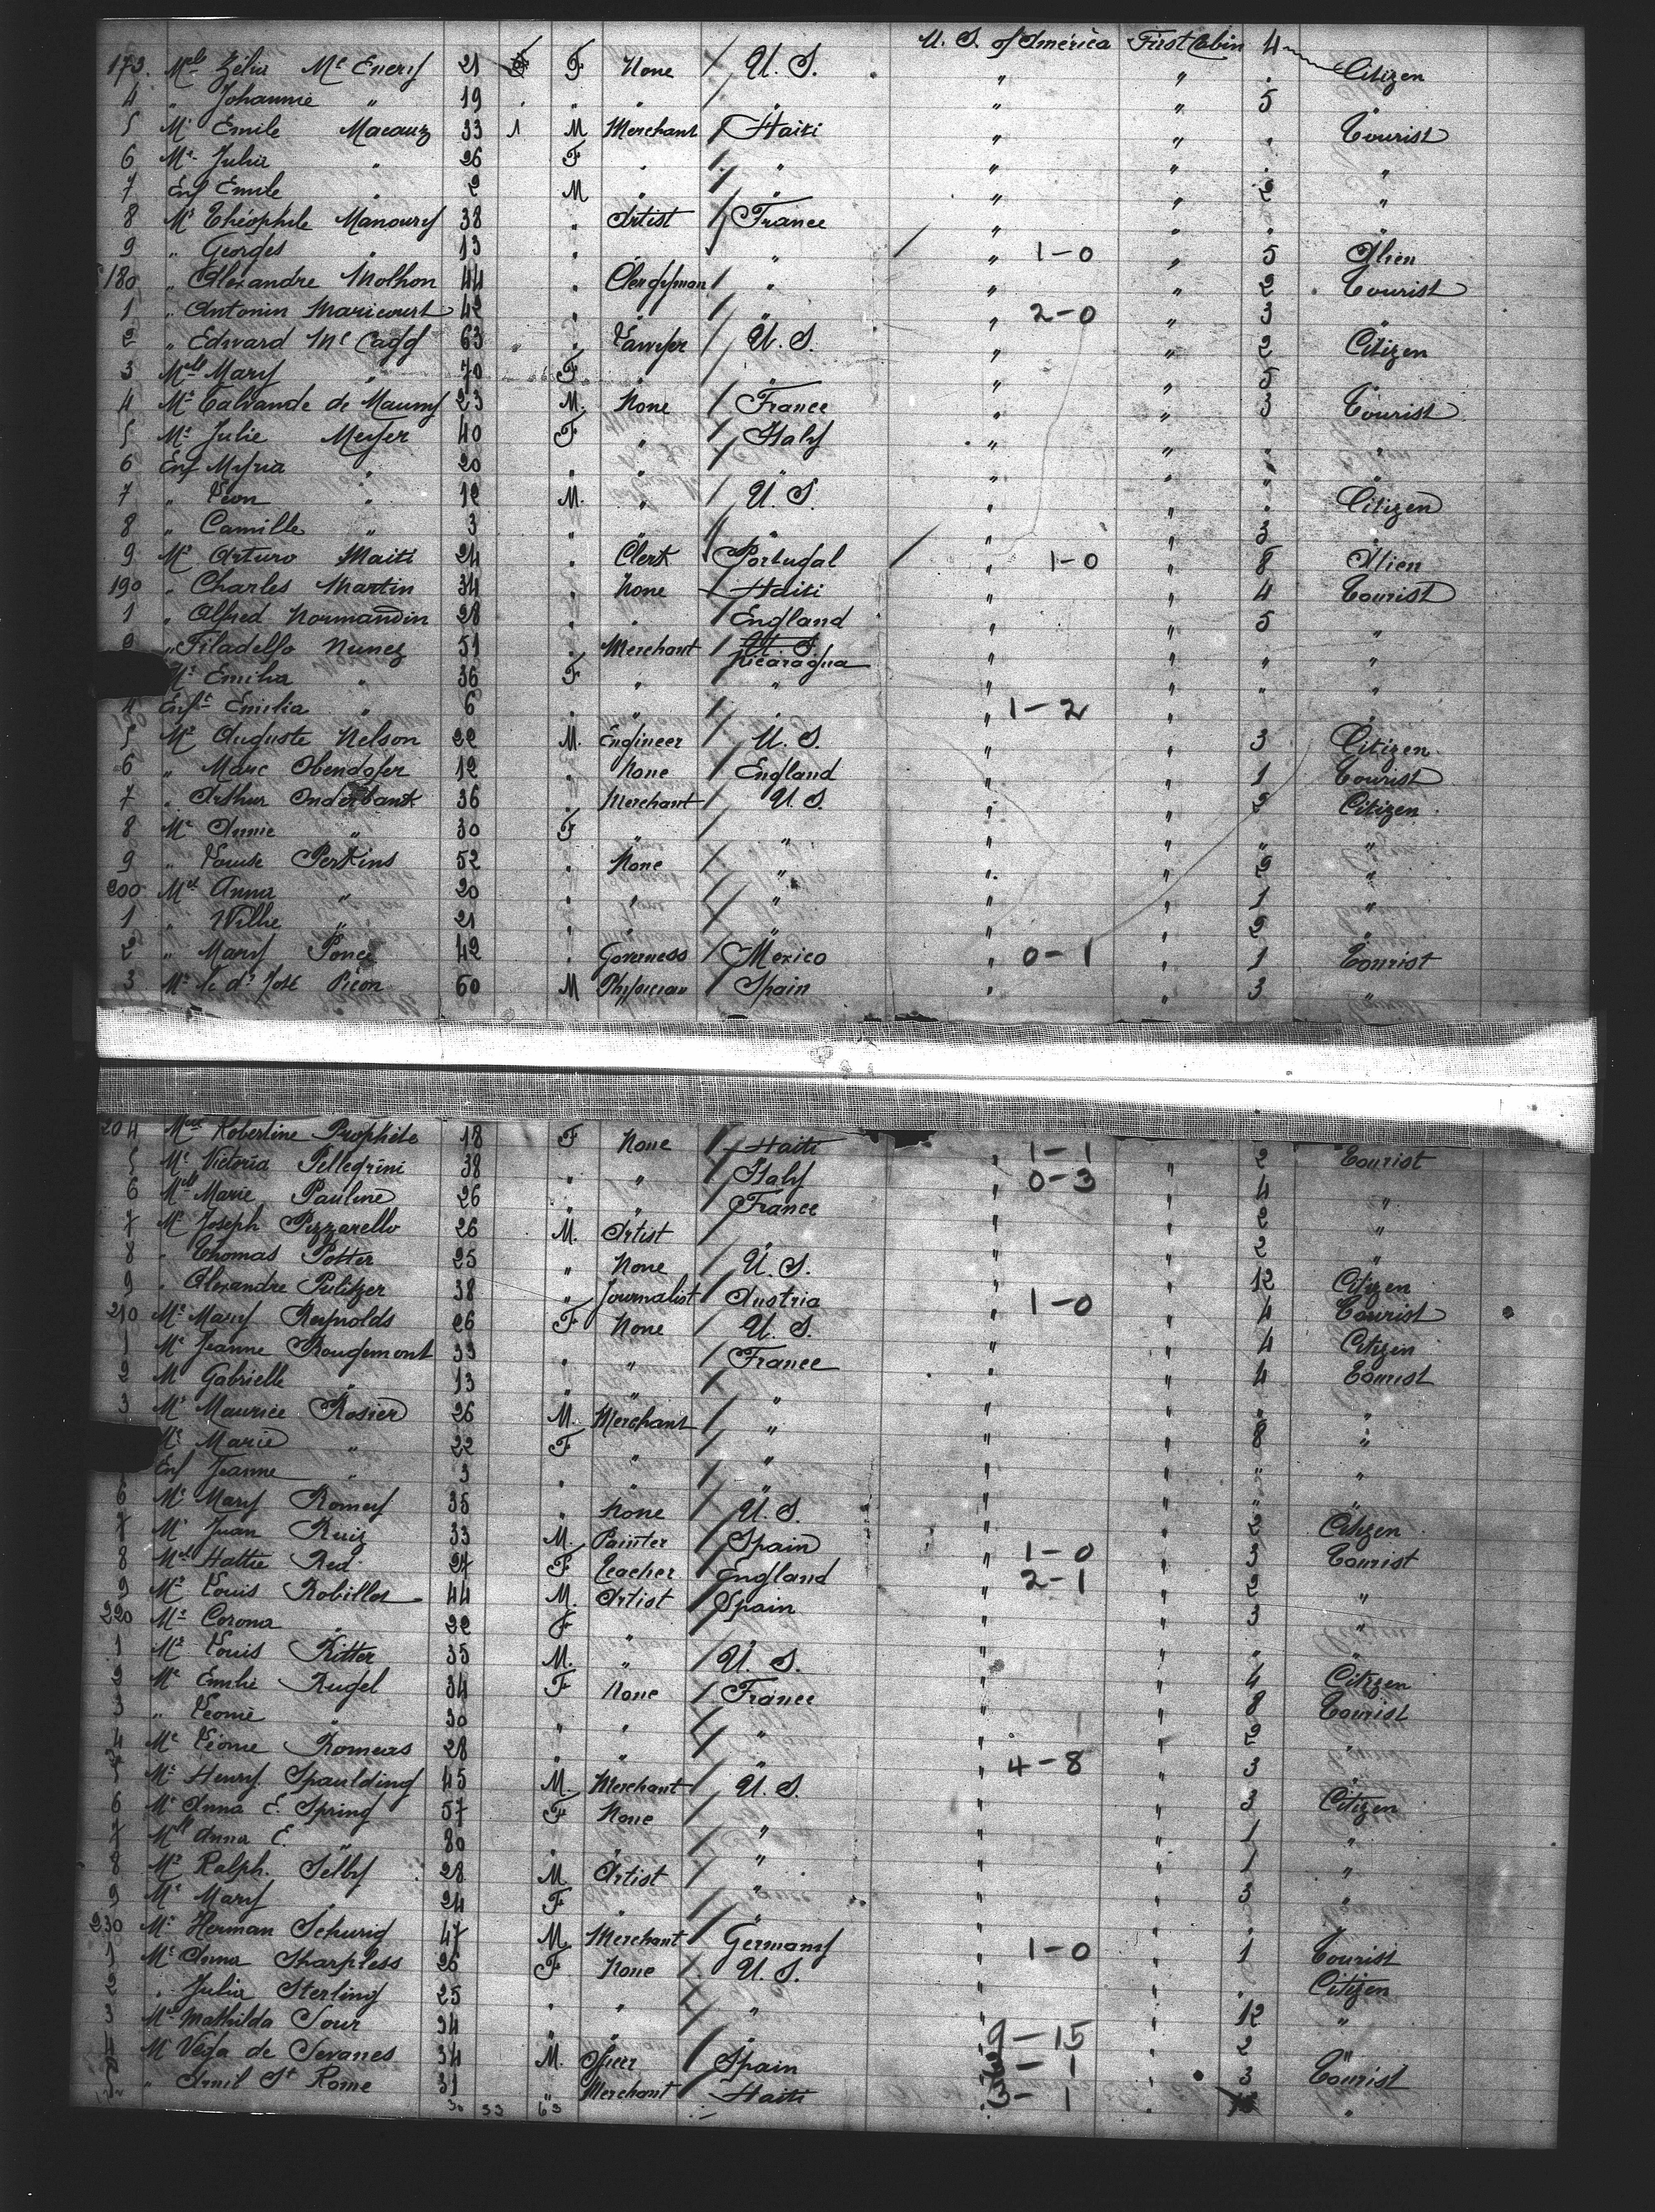 U. S. of América First Cabin 4
173. Melle Zélia Mc Enery 21 F None / U. S. " " . Citizen
4 " Johannie " 19 " " / " " " 5 "
5 Mr Emile Macauz 33 1 M Merchant / Haiti " " " Tourist
6 Me Julia " 26 F " / " " " " "
7 Enf Emile " 2 M " / " " " 2 "
8 Mr Théophile Manoury 38 " Artist / France " " " "
9 " Georges " 13 " " " " 1-0 " 5 Alien
180 " Alexandre Molhon 44 " Clergyman / " " " 2 Tourist
1 " Antonin Maricourt 42 " " / " " 2-0 " 3 "
2 " Edward Mc Cagg 63 " Lawyer / U. S. " " 2 Citizen
3 Melle Mary " 70 F " / " " " 5 "
4 Mr Calvande de Maumy 23 M. None / France " " 3 Tourist
5 Me Julie Meyer 40 F " / Italy " " " "
6 Enf Myria " 20 " " / " " " " "
7 " Léon " 12 M. " / U. S. " " " Citizen
8 " Camille " 3 " " / " " " 3 "
9 Mr Arturo Maiti 24 " Clerk / Portugal " 1-0 " 8 Alien
190 " Charles Martin 34 " None / Haiti " " 4 Tourist
1 " Alfred Normandin 28 " " / England " " 5 "
2 " Filadelfo Nunez 51 " Merchant / U. S. Nicaragua " " " "
Me Emilia " 36 F " " " " " "
4 Enft Emilia " 6 " " / " " 1-2 " " "
5 Mr Auguste Nelson 22 M. Engineer / U. S. " " 3 Citizen
6 " Marc Obendofer 12 " None / England " " 1 Tourist
7 " Arthur Onderdank 36 " Merchant / U. S. " " 2 Citizen
8 Me Annie " 30 F " / " " " " "
9 " Louise Perkins 52 " None / " " " 2 "
200 Mel Anna " 20 " " / " " " 1 "
1 " Willie " 21 " " / " " " 2 "
2 " Mary Ponce 42 " Governess / Mexico " 0-1 " 1 Tourist
3 Mr le dr José Picon 60 M Physician / Spain " " 3 "
204 Melle Robertine Prophète 18 F None / Haiti " 1-1 " 2 Tourist
5 Me Victoria Pellegrini 38 " " / Italy " 0-3 " 4 "
6 Melle Marie Pauline 26 " " / France " " 2 "
7 Mr Joseph Pizzarello 26 M. Artist / " " " 2 "
8 " Thomas Potter 25 " None / U. S. " " 12 Citizen
9 " Alexandre Pulitzer 38 " Journalist / Austria " 1-0 " 4 Tourist
210 Me Mary Reynolds 26 F None / U. S. " " 4 Citizen
1 Me Jeanne Rougemont 33 " " / France " " 4 Tourist
2 M Gabrielle " 13 " " / " " " " "
3 Mr Maurice Rosier 26 M. Merchant / " " " 8 "
Me Marie " 22 F " / " " " " "
Enf Jeanne " 3 " " / " " " " "
6 Me Mary Romey 35 " None / U. S. " " 2 Citizen
7 Mr Juan Ruiz 33 M. Painter / Spain " 1-0 " 3 Tourist
8 Mel Hattie Red 27 F Teacher / England " 2-1 " 2 "
9 Mr Louis Robillot 44 M. Artist / Spain " " 3 "
220 Me Corona " 22 F " " " " " "
1 Mr Louis Ritter 35 M. " / U. S. " " 4 Citizen
2 Me Emilie Rugel 34 F None / France " " 8 Tourist
3 " Leonie " 30 " " / " " " 2 "
4 Me Léonie Romeas 28 " " / " " 4-8 " 3 "
5 Mr Henry Spaulding 45 M. Merchant / U. S. " " 3 Citizen
6 Me Anna E. Spring 57 F None / " " " 1 "
7 Mell Anna E. " 80 " " / " " " 1 "
8 Mr Ralph. Selby 28 M Artist / " " " 3 "
9 Me Mary " 24 F " / " " " " "
230 Mr Herman Schurig 47 M Merchant / Germany " 1-0 " 1 Tourist
1 Me Anna Sharpless 26 F None / U. S. " " " Citizen
2 " Julia Sterling 25 " " / " " " 12 "
3 Me Mathilda Sour 34 " " / " " 9-15 " 2 "
4 M Vega de Sevanes 34 M. Officer / Spain " 3-1 " 3 Tourist
5 " Arnil St Rome 31 " Merchant / Haiti " 3-1 " "
30 33 63